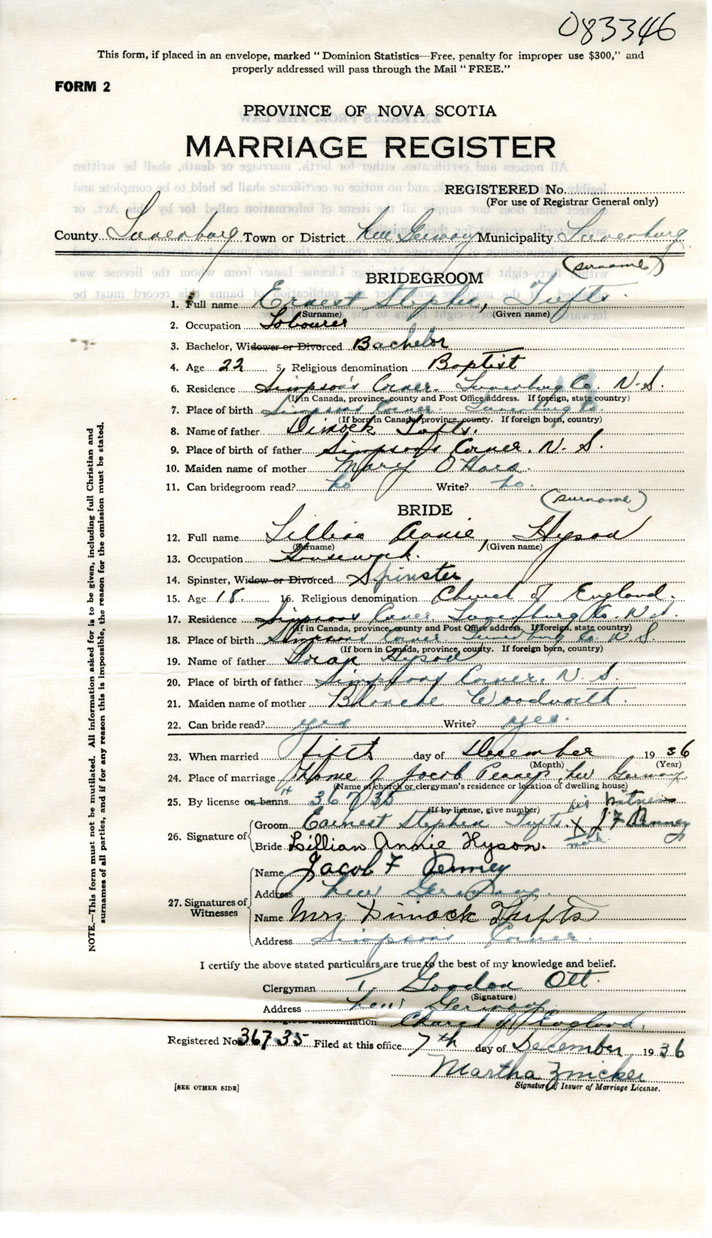 083346
This form, if placed in an envelope, marked "Dominion Statistics—Free, penalty for improper use $300," and
properly addressed will pass through the Mail "FREE."
FORM 2
PROVINCE OF NOVA SCOTIA
MARRIAGE REGISTER
REGISTERED No.
(For use of Registrar General only)
County Lunenburg Town or District New Germany Municipality Lunenburg
(surname)
BRIDEGROOM
1. Full name Ernest Stephen, Tufts
(Surname) (Given name)
2. Occupation Labourer
3. Bachelor, Widower or Divorced Bachelor
4. Age 22 5. Religious denomination Baptist
6. Residence Simpson's Corner. Lunenburg Co. N.S.
(If in Canada, province, county and Post Office address. If foreign, state country)
7. Place of birth Simpson's Corner Lunenburg Co.
(If born in Canada, province, county. If foreign born, country)
8. Name of father Dimock Tufts.
9. Place of birth of father Simpson's Corner. N. S.
10. Maiden name of mother Mary O'Hara
11. Can bridegroom read? no Write? no.
(surname)
BRIDE
12. Full name Lillian Annie, Hyson
(Surname) (Given name)
13. Occupation Housework.
14. Spinster, Widow or Divorced Spinster
15. Age 18. 16. Religious denomination Church of England.
17. Residence Simpsons Corner. Lunenburg Co. N.S.
(If in Canada, province, county and Post Office address. If foreign, state country)
18. Place of birth Simpson Corner Lunenburg Co N S
(If born in Canada, province, county. If foreign born, country)
19. Name of father Hyson
20. Place of birth of father Simpsons Corner. N. S.
21. Maiden name of mother Blanche Woodworth
22. Can bride read? yes Write? yes.
23. When married fifth day of December 1936
(Month) (Year)
24. Place of marriage Home of Jacob Penney New Germany
(Name of church or clergyman's residence or location of dwelling house)
25. By license or banns 36735
(If by license, give number) his witness
26. Signature of Groom Earnest Stephen Tufts X J F Penney
mark
Bride Lillian Annie Hyson.
27. Signatures of Witnesses
Name Jacob F Penney
Address New Germany.
Name Mrs Dimock Thufts
Address Simpson's Corner.
I certify the above stated particulars are true to the best of my knowledge and belief.
Clergyman T. Gordon Ott.
(Signature)
Address New Germany
denomination Church of England.
Registered No. 36735 Filed at this office 7th day of December 1936
Martha Zwicker
Signature of Issuer of Marriage License.
[SEE OTHER SIDE]
NOTE.—This form must not be mutilated. All information asked for is to be given, including full Christian and
surnames of all parties, and if for any reason this is impossible, the reason for the omission must be stated.